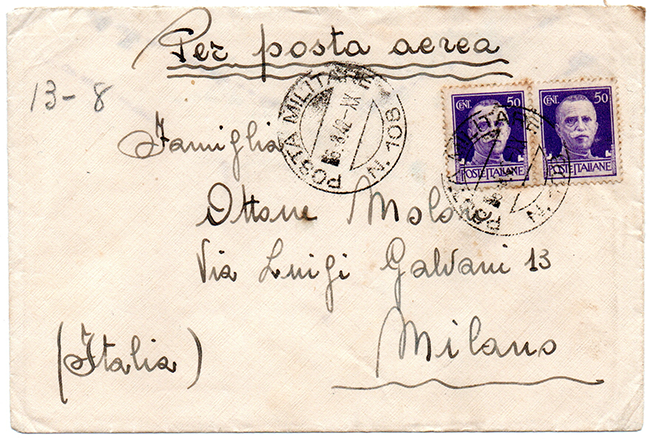 Per posta aerea
13-8
POSTA MILITARE
108
CENT. 50
POSTE ITALIANE
CENT. 50
POSTE ITALIANE
Famiglia
Ottone
Via Luigi Galvani 13
Milano
(Italia)